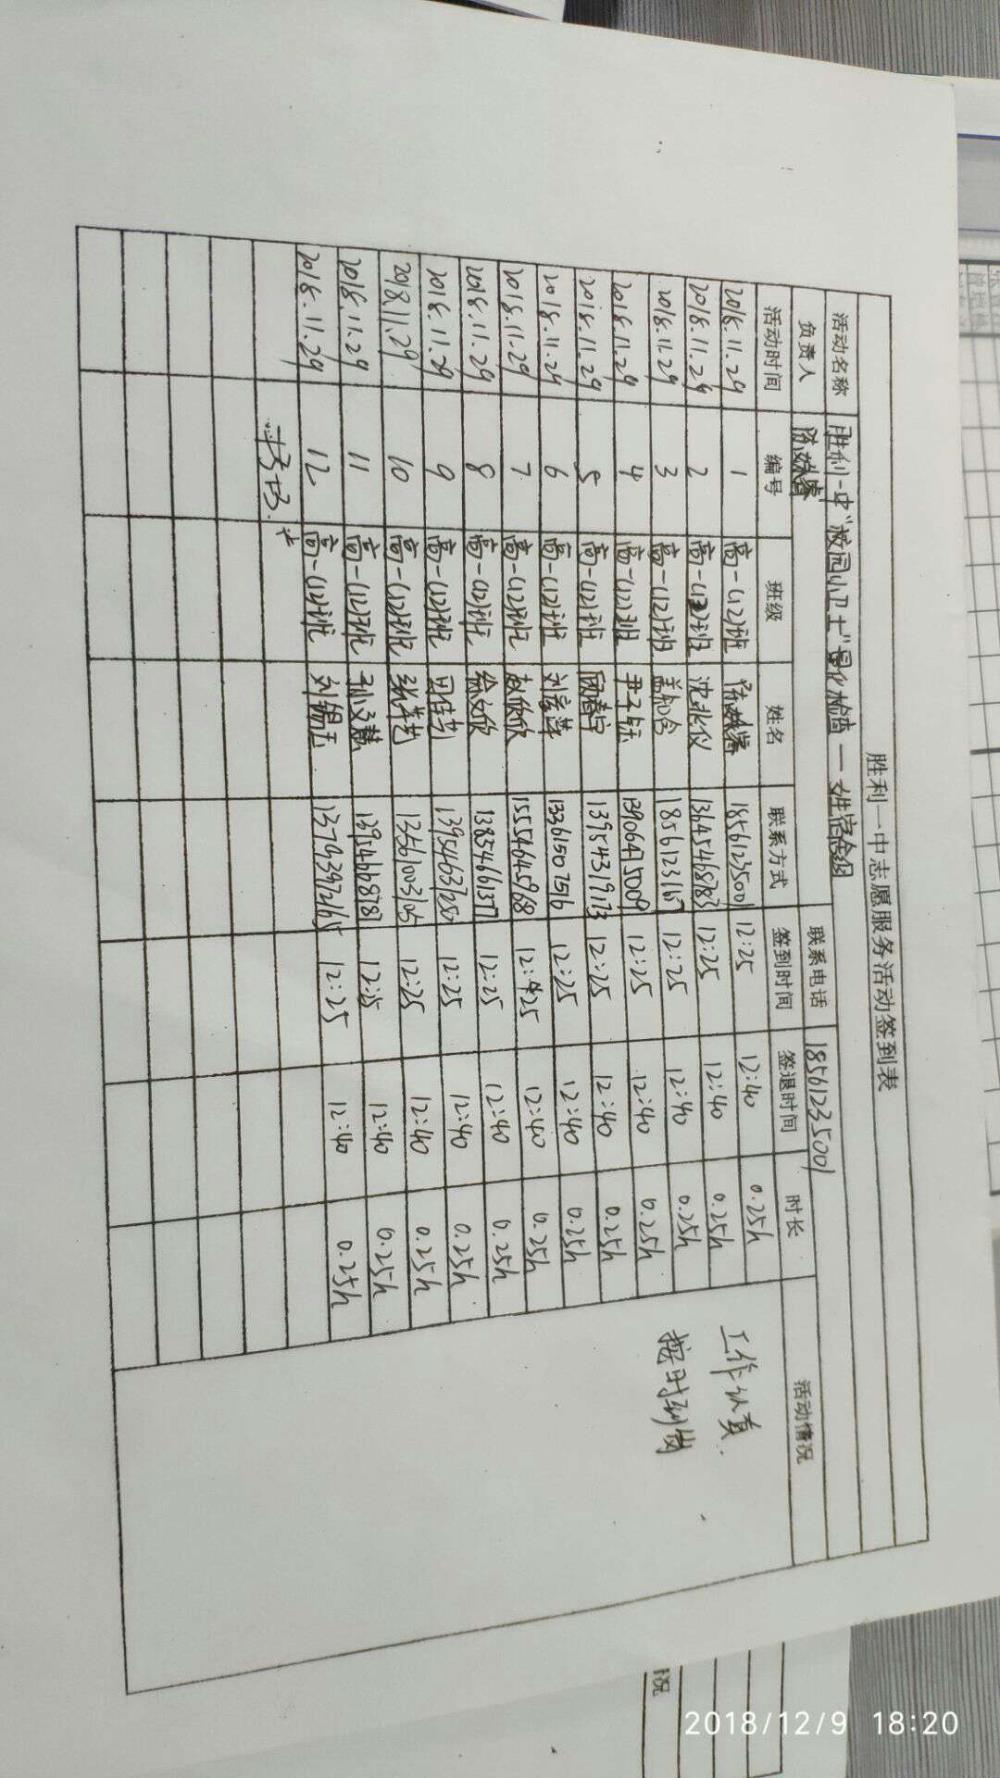 胜利一中志愿服务活动签到表
活动名称 胜利一中"校园小卫士"量化检查一女生宿舍图
负责人 联系电话 18561235001
活动时间 编号 班级 姓名 联系方式 签到时间 签退时间 时长 活动情况
2018.11.29 1 高一(12)班 18561235001 12:25 12:40 0.25h
2018.11.29 2 高一(12)班 沈兆仪 13645468783 12:25 12:40 0.25h
2018.11.29 3 高一(12)班 盖知含 18561231167 12:25 12:40 0.25h
2018.11.29 4 高一(12)班 尹子钰 13906415009 12:25 12:40 0.25h
2018.11.29 5 高一(12)班 顾春宇 13954319173 12:25 12:40 0.25h
2018.11.29 6 高一(12)班 刘彦萍 13361507516 12:25 12:40 0.25h
2018.11.29 7 高一(12)班 赵欣欣 15554645968 12:25 12:40 0.25h
2018.11.29 8 高一(12)班 徐文欣 13854661377 12:25 12:40 0.25h
2018.11.29 9 高一(12)班 田佳艺 13954637250 12:25 12:40 0.25h
2018.11.29 10 高一(12)班 张芊艺 13561003105 12:25 12:40 0.25h
2018.11.29 11 高一(12)班 孙文慧 13954668787 12:25 12:40 0.25h
2018.11.29 12 高一(12)班 刘锡玉 13793972165 12:25 12:40 0.25h
工作认真.
按时到岗
况
2018/12/9 18:20